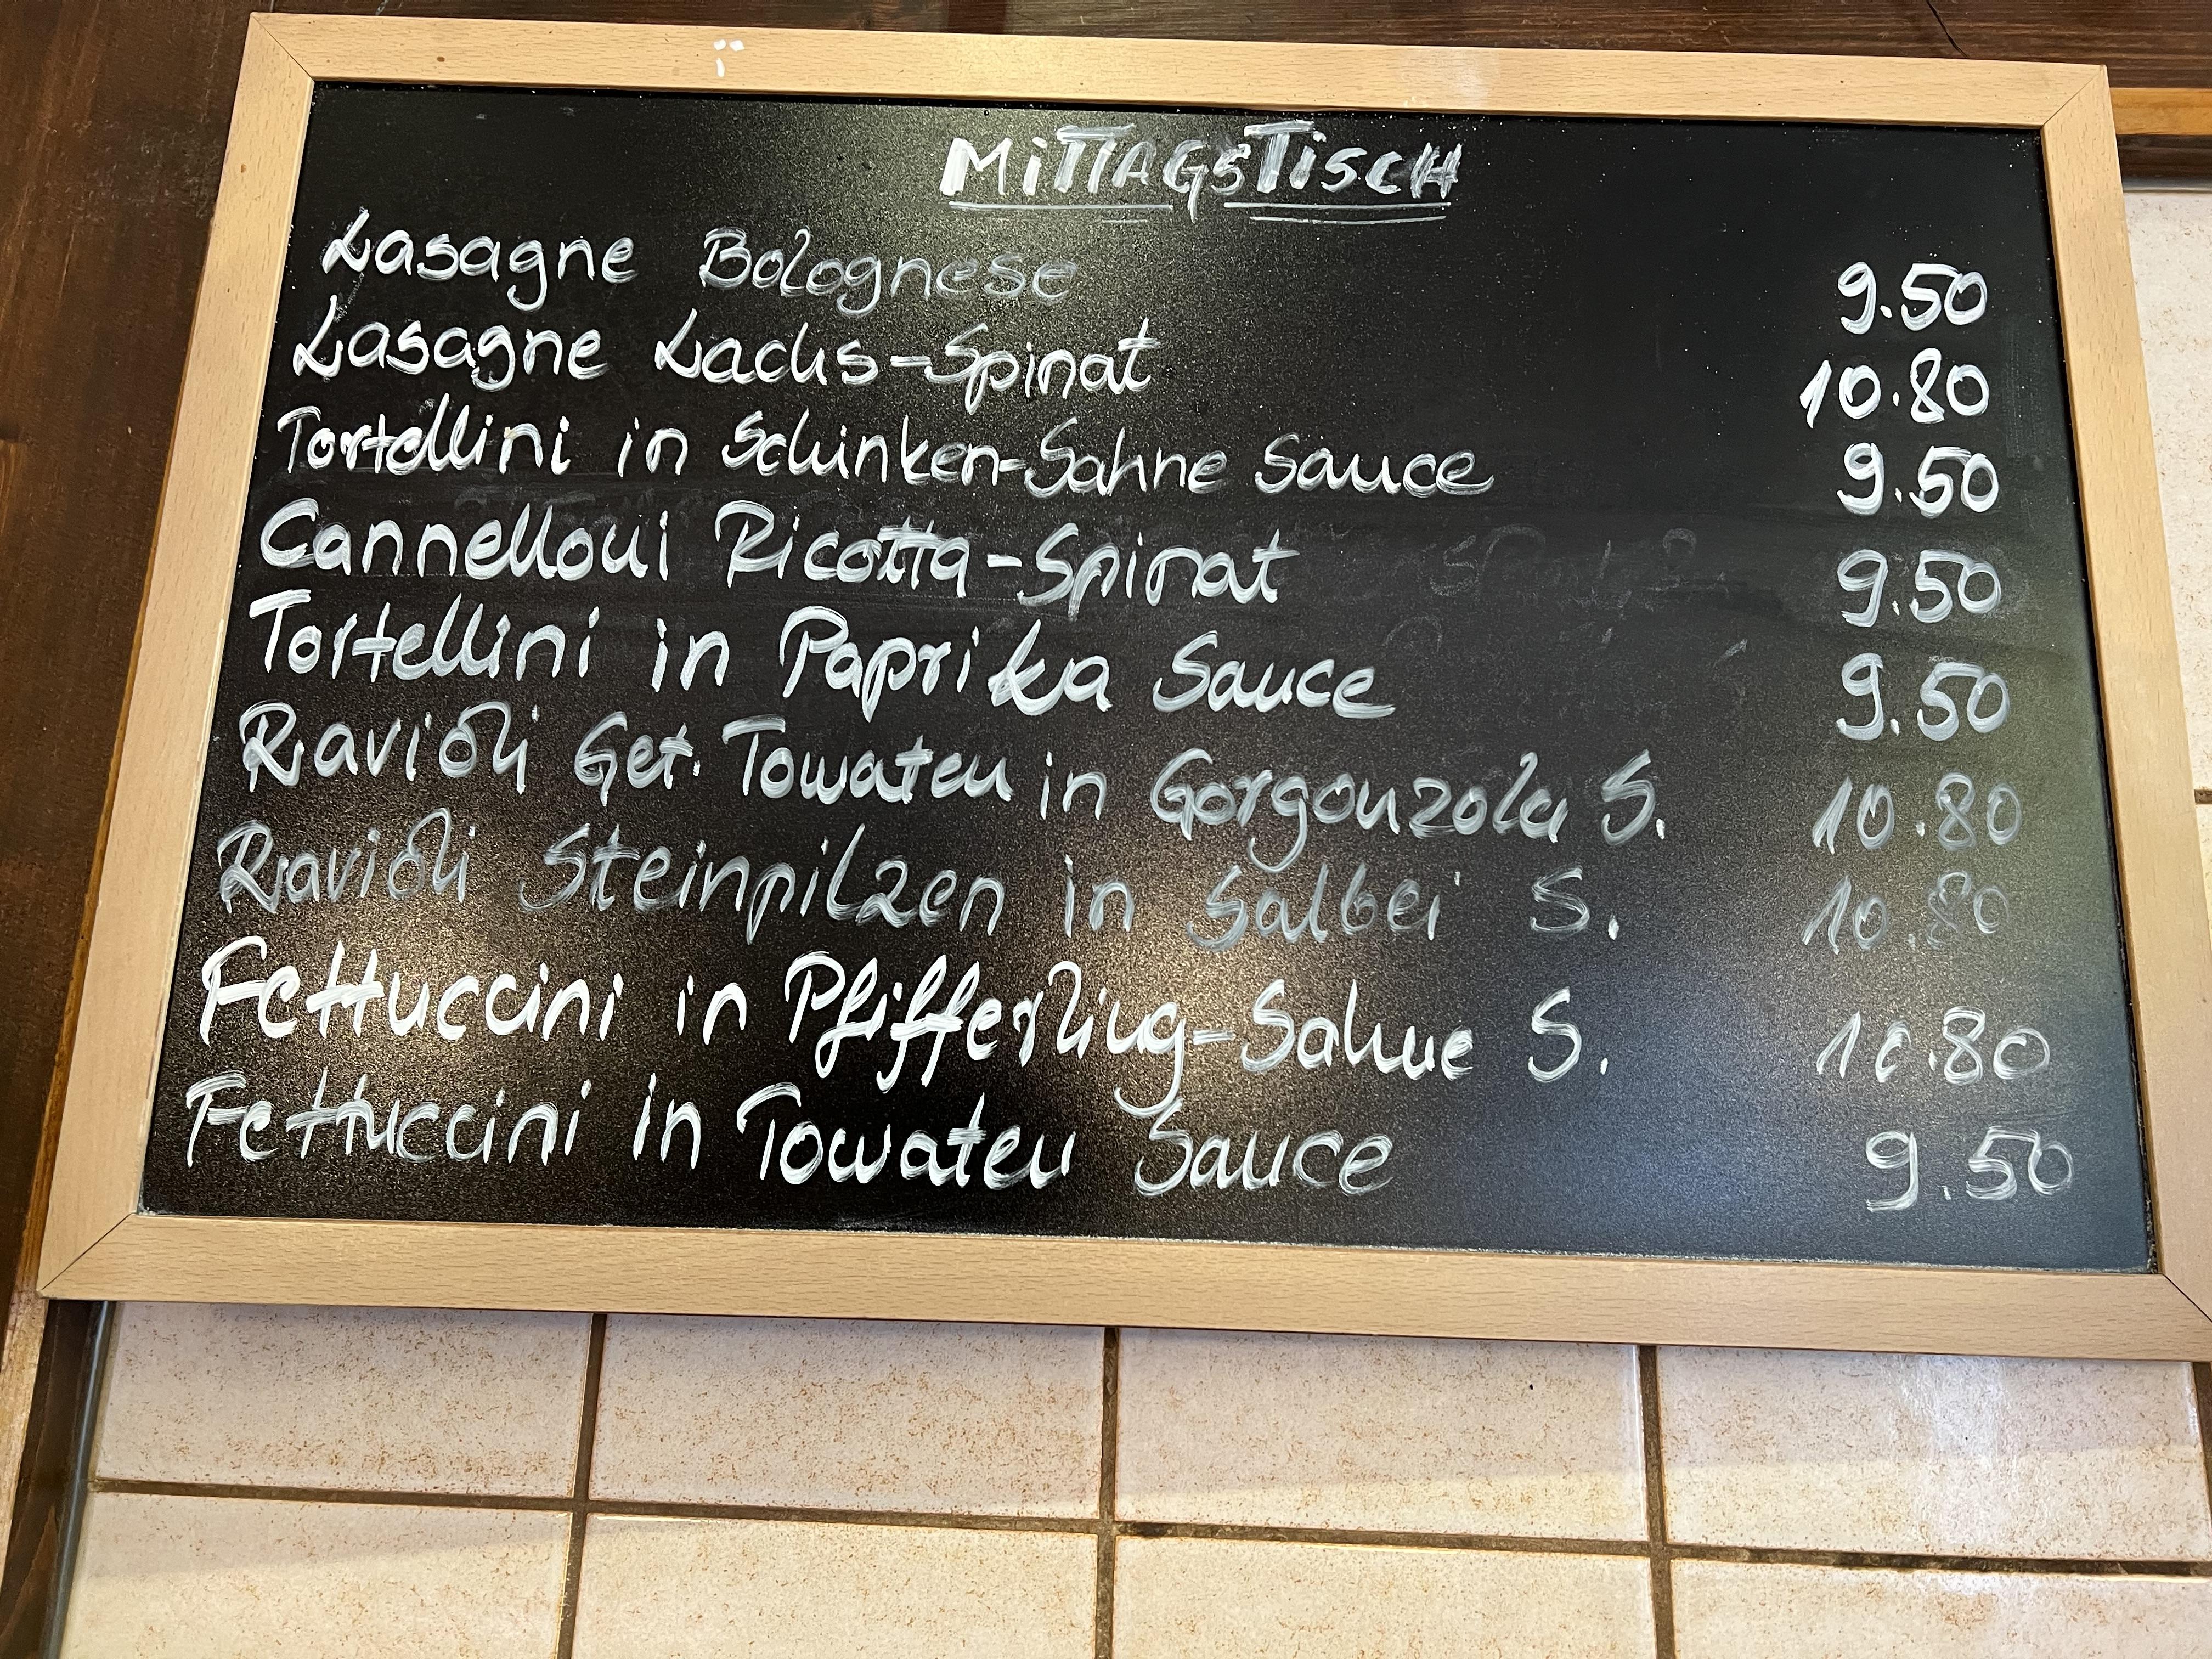 MiTTAGSTiSCH
Lasagne Bolognese 9.50
Lasagne Lachs-Spinat 10.80
Tortellini in Schinken-Sahne Sauce 9.50
Cannelloni Ricotta-Spinat 9.50
Tortellini in Paprika Sauce 9.50
Ravioli Get. Tomaten in Gorgonzola S. 10.80
Ravioli Steinpilzen in Salbei S. 10.80
Fettuccini in Pfifferling-Sahne S. 10.80
Fettuccini in Tomaten Sauce 9.50